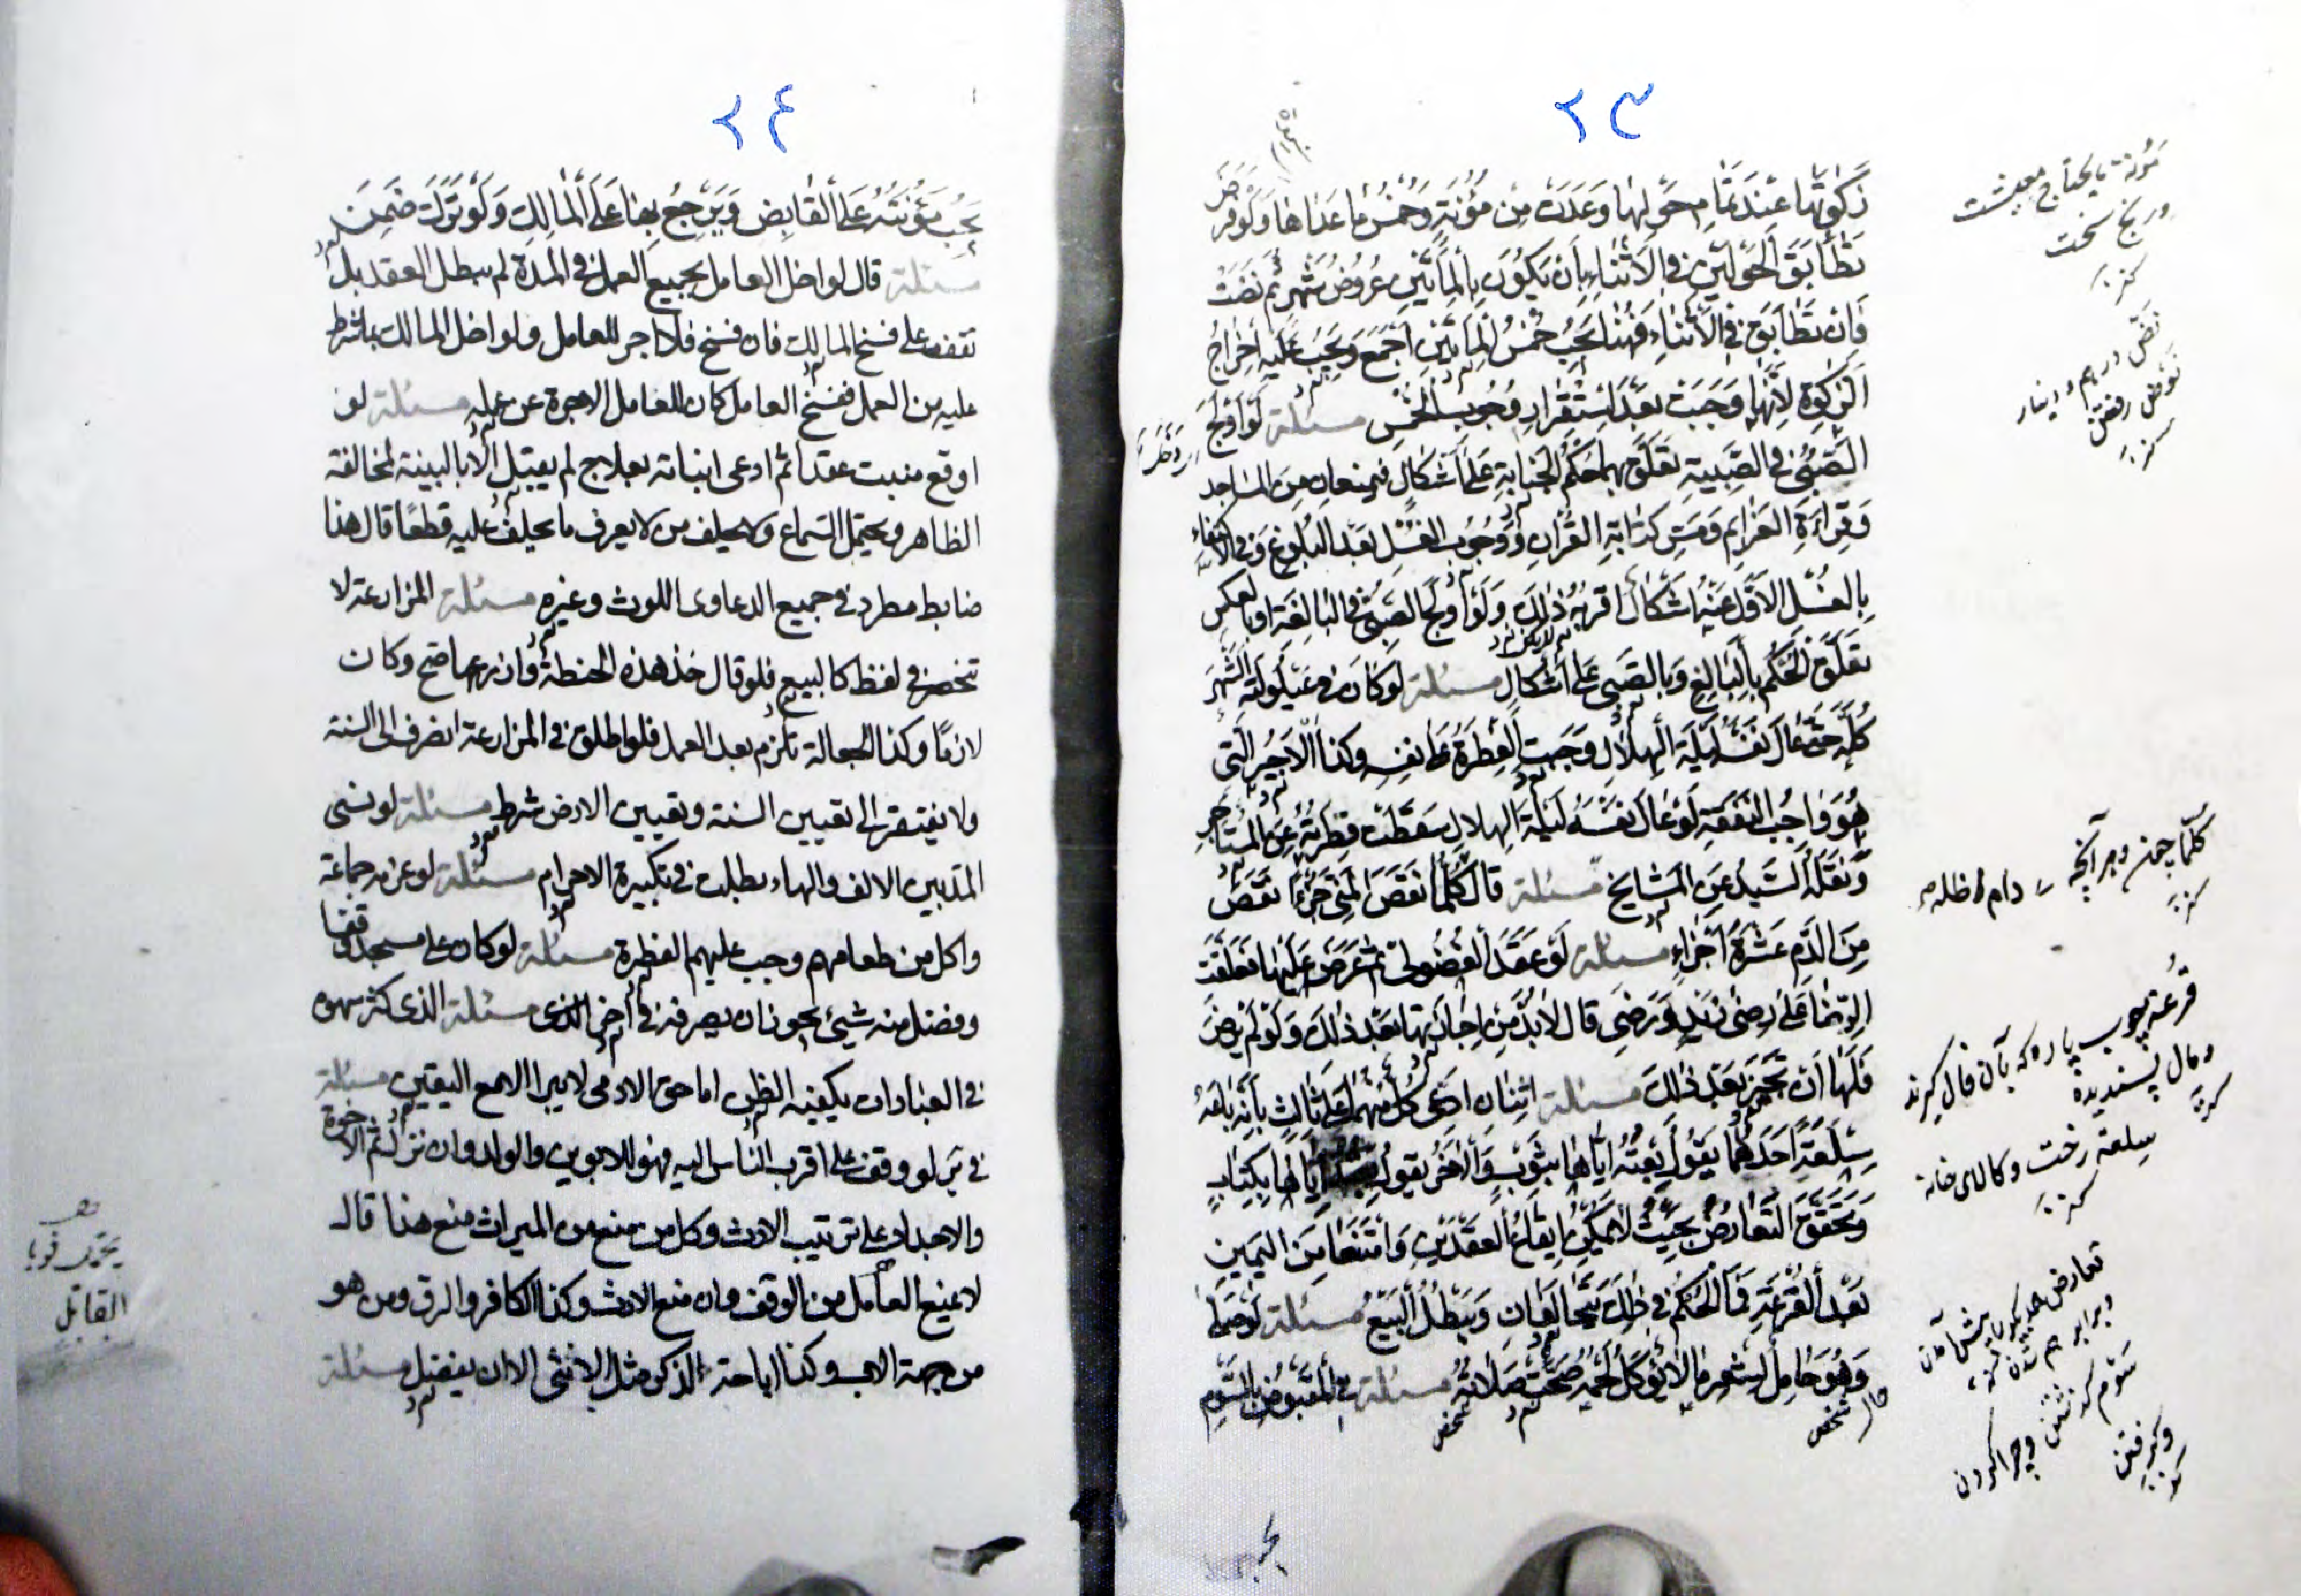 ٢٣
زكوتها عند تمام حولها وعدت من مؤنة وخمس ما عداها ولو فرض
تطابق الحولين في الاثناء بأن يكون بالمأتين عروض شهر ثم نضت
فان تطابق في الأثناء فهنا يجب خمس المأتين أجمع ويجب عليه اخراج
الزكوة لأنها وجبت بعد استقرار وجوب الخمس مسئلة لو أولج
الصبي في الصبية تعلق بهما حكم الجنابة على اشكال فيمنعان من المساجد
وقراءة العزايم ومس كتابة القرآن ووجوب الغسل بعد البلوغ وفي الاكتفاء
بالغسل الاول عنه اشكال اقربه ذلك ولو أولج الصبي في البالغة او بالعكس
تعلق الحكم بالبالغ وبالصبي على اشكال مسئلة لو كان في عيلولته الشهر
كله حتى عال نفسه ليلة الهلال وجبت الفطرة على نفسه وكذا الاجير التي
هو واجب النفقة لو عال نفسه ليلة الهلال سقطت فطرته عن المستاجر
ونقله السيد عن المشايخ مسئلة قال كلما نقص المني جزءا نقص
من الدم عشرة أجزاء مسئلة لو عقد الفضولي ثم عرض عليها فعلقت
الرضا على رضى زيد ورضي قال لابد من اجازتها بعد ذلك ولو لم يرض
فلها ان تجيز بعد ذلك مسئلة اثنان ادعى كل منهما على ثالث بأنه باعه
سلعة احدهما يقول بعته اياها بثوب والاخر يقول اياها بكتاب
وتحقق التعارض بحيث لا يمكن ايقاع العقدين وامتنعا من اليمين
بعد القرعة فما الحكم في ذلك يتحالفان ويبطل البيع مسئلة لو صلى
وهو حامل لشعر ما لا يؤكل لحمه صحت صلاته مسئلة في المقبوض بالسوم
مؤنة ما يحتاج معيشت
ورنج سخت
كنز
نض درهم ودينار
كنز
كلما چون وهر آنچه دام ظله
كنز
قرعة چوب پاره كه بآن فال گيرند
ومال پسنديده
كنز
سلعة رخت وكالای خانه
كنز
وبرابر هم شدن
سوم گذشتن وچرا كردن
كنز
٢٤
يجب مؤنته على القابض ويرجع بها على المالك ولو تركت ضمن
مسئلة قال لو اخل العامل بجميع العمل في المدة لم يبطل العقد بل
تقف على فسخ المالك فان فسخ فلا اجر للعامل ولو اخل المالك بما شرط
عليه من العمل ففسخ العامل كان للعامل الاجرة عن عمله مسئلة لو
اوقع منبت عقدا ثم ادعى انباته بعلاج لم يقبل الا بالبينة لمخالفة
الظاهر ويحتمل السماع ولا يحلف من لا يعرف ما يحلف عليه قطعا قال هذا
ضابط مطرد في جميع الدعاوى اللوث وغيره مسئلة المزارعة لا
تنحصر في لفظ كالبيع فلو قال خذ هذه الحنطة وازرعها صح وكان
لازما وكذا الجعالة تلزم بعد العمل فلو اطلق في المزارعة انصرف الى السنة
ولا يفتقر الى تعيين السنة وتعيين الارض شرط مسئلة لو نسى
المد بين الالف والهاء بطلت في تكبيرة الاحرام مسئلة لو عزمه جماعة
واكل من طعامهم وجب عليهم الفطرة مسئلة لو كان على مسجد وقفا
وفضل منه شيئ يجوز ان يصرفه في آخر مسئلة الذي كثر سهوه
في العبادات يكفيه الظن اما حق الادمى لا يبرا الا مع اليقين مسئلة
في بر لو وقف على اقرب الناس اليه فهو للابوين والولد وان نزل ثم الاخوة
والاجداد على ترتيب الارث وكل من منع من الميراث منع هذا قال
لا يمنع العامل من الوقف وان منع الارث وكذا الكافر والرق ومن هو
من جهة الاب وكذا اباحة الذكر مثل الانثى الا ان يفضل مسئلة
القاتل